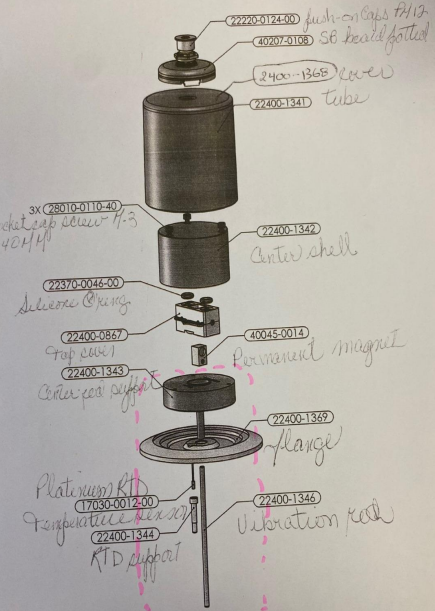 22220-0124-00 push-on caps PH12
40207-0108 SE board potted
2400-1368 cover
22400-1341 tube
3X 28010-0110-40
socket cap screw M-3
40 MM
22400-1342
Center shell
22370-0046-00
Silicone Oring
22400-0867
Top cover
40045-0014
Permanent magnet
22400-1343
Center rod support
22400-1369
flange
Platinum RTD
17030-0012-00
Temperature sensor
22400-1346
Vibration rod
22400-1344
RTD support